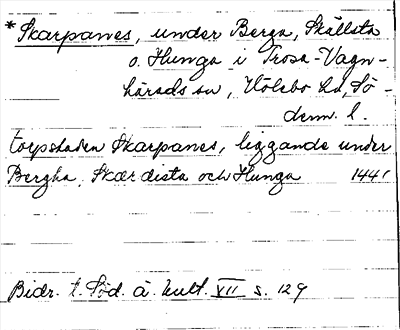 *Skarpanes, under Berga, Skällsta
o. Hunga i Trosa-Vagn-
härads sn, Hölebo hd, Sö-
derm. l.
torpstaden Skarpanes, liggande under
Bergha, Skærdista och Hunga 1441
Bidr. t. Söd. ä. kult. VII s. 129